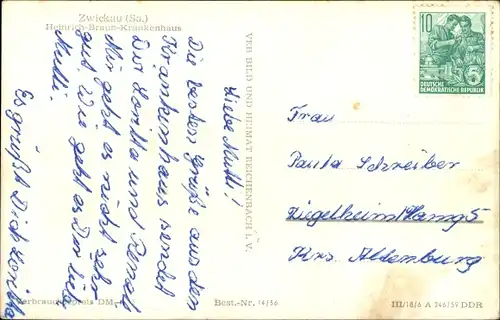 Zwickau (Sa.)
Heinrich-Braun-Krankenhaus
Liebe Mutti!
Die besten Grüße aus den
Krankenhaus sendet
Dir Loritta und
Mir geht es nicht sehr
gut. Wie geht es Dir liebe
Mutti.
Es grüßt Dich Loritta
VEB BILD UND HEIMAT REICHENBACH i. V.
10
DEUTSCHE
DEMOKRATISCHE REPUBLIK
Frau
Paula Schreiber
Ziegelheim
Krs. Altenburg
Verbraucherpreis DM
Best.-Nr. 14/36
III/18/6 A 246/59 DDR